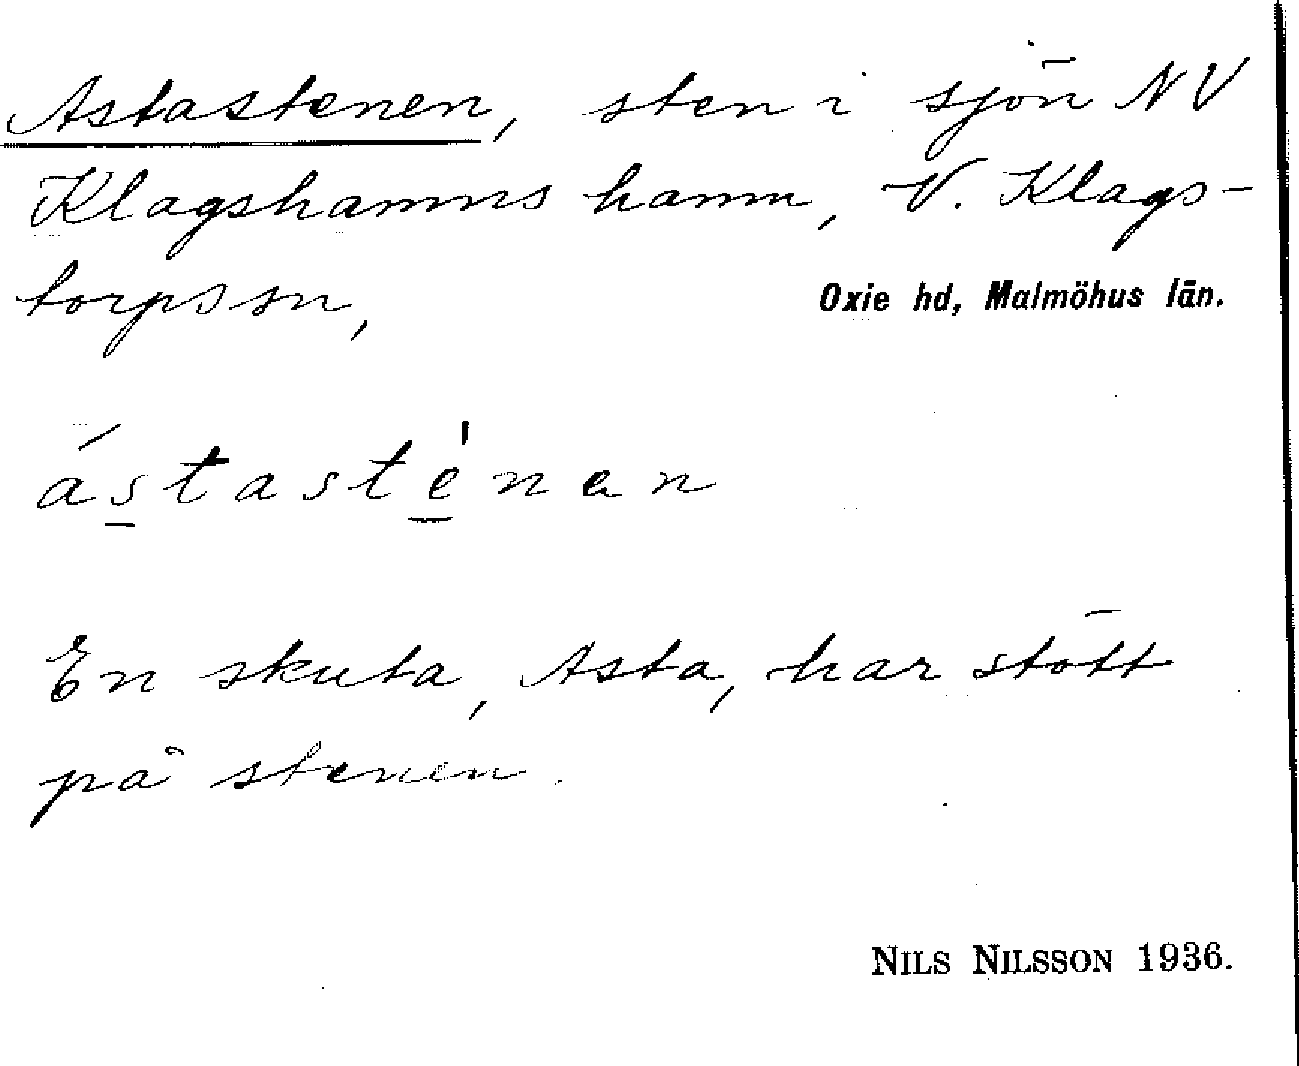 Astastenen, sten i sjön NV
Klagshamns hamn, V. Klags-
torps sn,
Oxie hd, Malmöhus län.
ástasténan
En skuta, Asta, har stött
på stenen.
NILS NILSSON 1936.